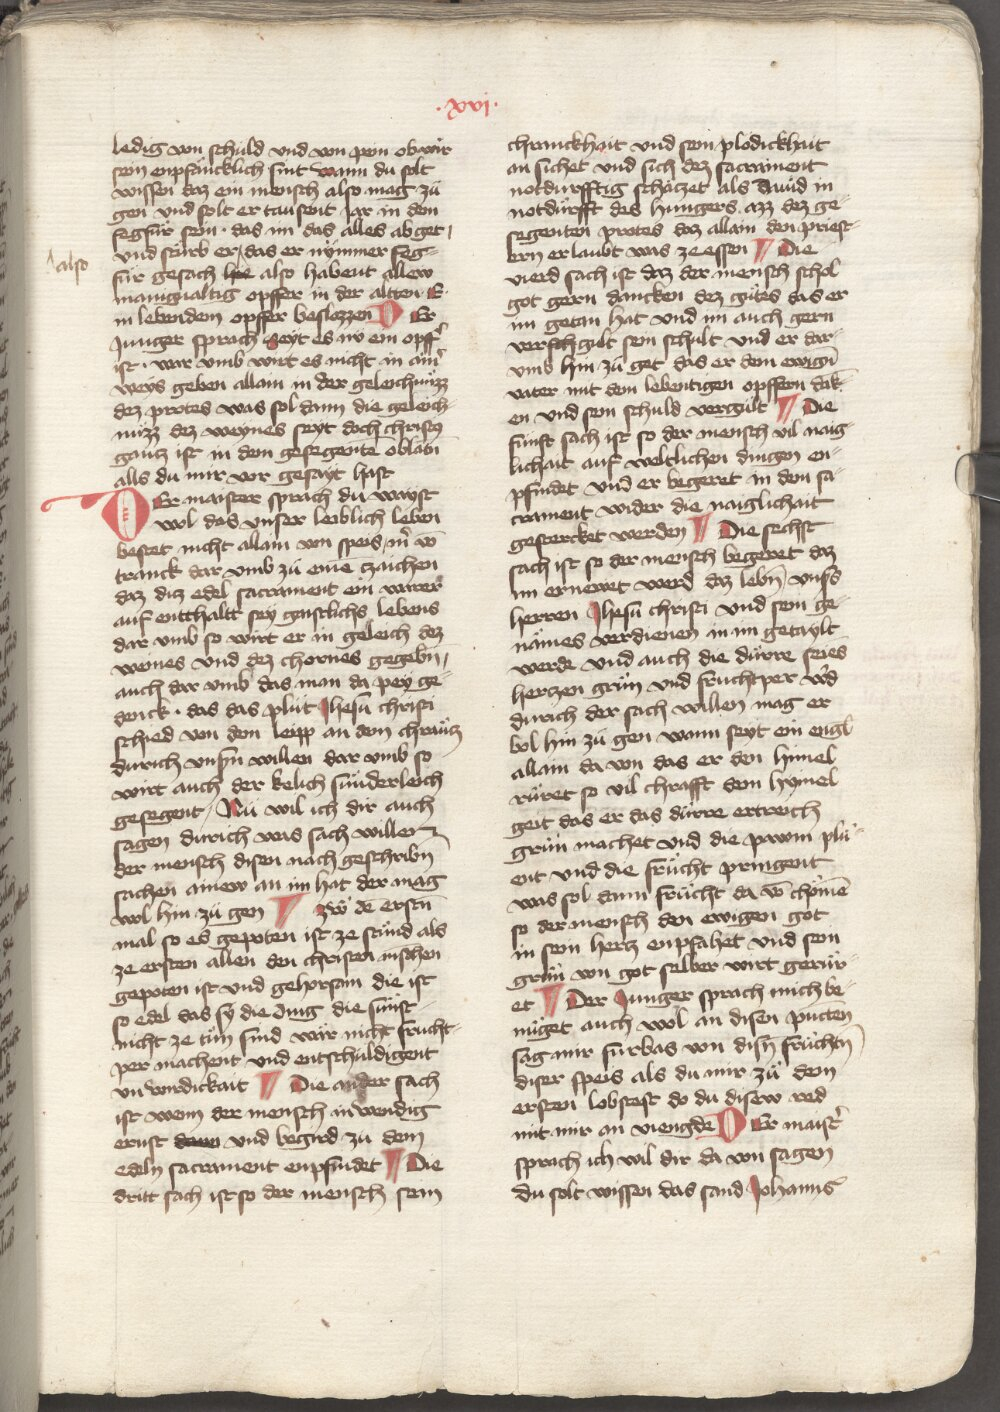 ·xvi·
ledig von schuld und von pein ob wir
sein enpfäncklich sint wann du solt
wissen daz ein mensch also mag zü
gen und solt er tausent Jar in dem
fegfür sein · das im das alles abget /
und stürb er / das er nymmer feg-
für gesach also habent allew
also
manigualtig opffer in der alten E·
in lebendem opffer beslozzen Der
Junger sprach Seyt es nü ein opff̕
ist · war umb wirt es nicht in aim̕
weys geben allain in der geleichnüzz
dez protes was sol dann die geleich-
nüzz dez weynes seyt doch christus
gancz ist in dem gesegente oblaien
alls du mir vor gesayt hast
Der maister sprach du wayst
wol das vnser leiblich leben
bestet nicht allain von speis m̕ vō
tranck dar vmb zü eine czaichen
daz diz edel sacrament ein warer
auf entthaltt sey geistlichs lebens
dar umb so wirt er in geleich dez
weines und dez chornes gegebn̄ /
auch dar umb das man da pey ge-
denck · das das plüt Jhesu christi
schied von dem leipp an dem chräucz
durich vnsn̄ willen dar vmb so
wirt auch der kelich sünderleich
gesegent / Nü wil ich dir auch
sagen durich was sach willen
der mensch disen nach geschribn̄
sachen ainew an im hat der mag
wol hin zü gen ¶ zwͦ de erstn̄
mal so es gepoten ist ze stund als
ze ersten allen den christen mschen
gepoten ist und gehorsam die ist
so edel das sy die ding die sünst
nicht ze tün sind wär nicht frucht-
per machent und entschuldigent
vnwirdickait ¶ Die ander sach
ist wem der mensch inwendig
ernst und begird zu dem
edeln sacrament enpfindet ¶ Die
dritt sach ist so der mensch sein
chranckhait und sein plödickhait
an sichet und sich dez sacrament
notdurfftig schäczet als Dauid in
notdürfft des hungers azz dez ge-
segenten protes daz allain den priest-
ern erlaubt was ze essen ¶ Die
vierd sach ist daz der mensch schol
got gern dancken dez gütes das er
im getan hat und im auch gern
verschgült sein schult und er dar-
vmb hin zü get das er dem ewign̄
vater mit dem lebentigen opffern dāk-
en und sein schuld vergült ¶ Die
fünft sach ist so der mensch vil naig-
lichait auf weltlichen dingen en-
pfindet und er begeret in dem sa-
crament wider die naiglichait
gesterket werden ¶ Die sechst
sach ist so der mensch begeret daz
im ernewet werd daz lebn̄ vnss̄
herren Jhesu christi und sein ge-
näines verdienen in im getaylt
werde und auch die dürre seies
herczen grün und fruchtper w̕d
durich der sach willen mag er
bol hin zü gen wann seyt ein engl
allain da von das er den himel
rüret so vil chrafft dem hymel
geit das er das dürre ertreich
grün machet und die pawm plü-
ent und die frücht pringent
was sol dann frücht da vō chömē
so der mensch den ewigen got
in sein hercz enpfahet und sein
grün von got selber wirt gerür-
et ¶ Der Junger sprach mich be-
nüget auch wol an disen puncten
sag mir fürbas von disn̄ früchtn̄
diser speis als du mir zü dem
ersten lobstest do du disew red
mit mir an viengde Der maist̕
sprach ich wil dir da von sagen
du solt wissen das sand Johanns